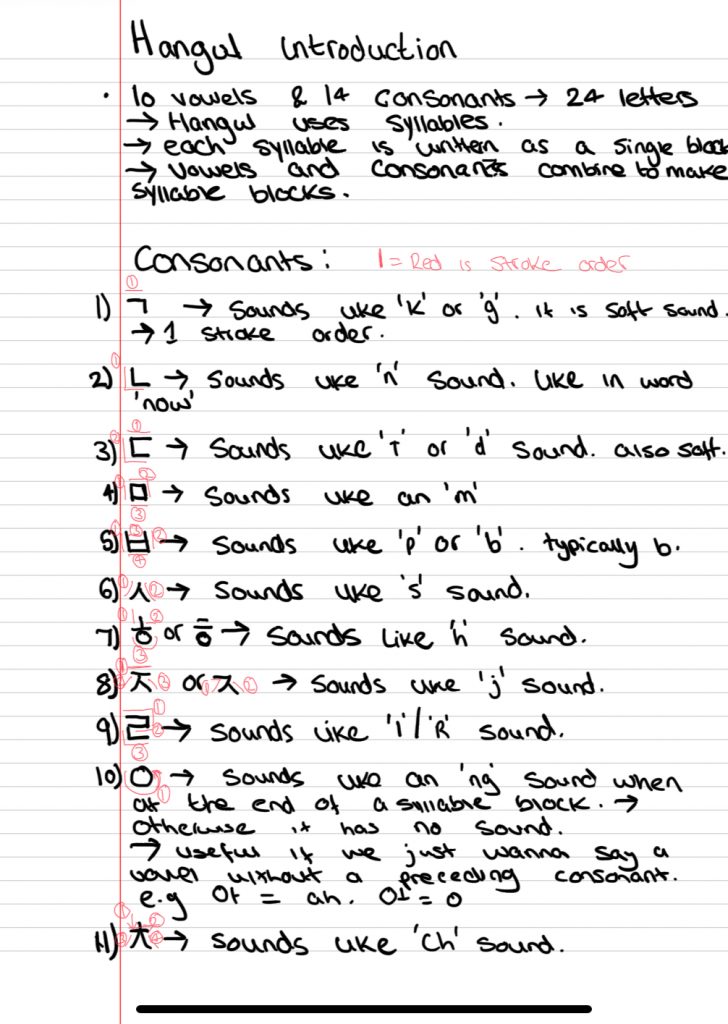 Hangul introduction
· 10 vowels & 14 consonants → 24 letters
→ Hangul uses syllables.
→ each syllable is written as a single block
→ vowels and consonants combine to make
syllable blocks.
Consonants: 1 = Red is stroke order
①
1) ㄱ → sounds like 'k' or 'g'. it is soft sound.
→ 1 stroke order.
①
2) ㄴ → sounds like 'n' sound. like in word
'now'
② ①
3) ㄷ → sounds like 'T' or 'd' sound. also soft.
① ②
4) ㅁ → sounds like an 'm'
③
① ③ ②
5) ㅂ → sounds like 'p' or 'b'. typically b.
④
6) ① ㅅ ② → sounds like 's' sound.
① ②
7) ㅎ or ㅎ → sounds like 'h' sound.
③
①
8) ② ㅈ ③ or ① ㅈ ② → sounds like 'j' sound.
①
9) ㄹ ② → sounds like 'l'/'R' sound.
③
10) ㅇ → sounds like an 'ng' sound when
①
at the end of a syllable block. →
otherwise it has no sound.
→ useful if we just wanna say a
vowel without a preceding consonant.
e.g 아 = ah. 오 = o
① ②
11) ③ ㅊ ④ → sounds like 'ch' sound.